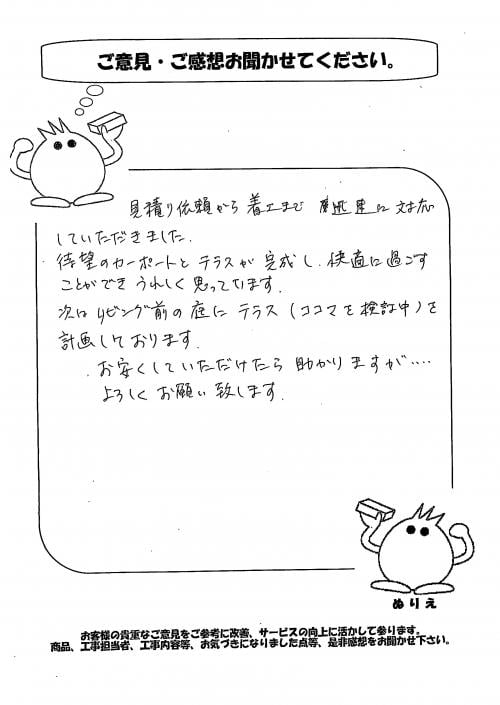 ご意見・ご感想お聞かせてください。
見積り依頼から着工まで 迅速に対応
していただきました.
待望のカーポートとテラスが完成し、快適に過ごす
ことができ うれしく思っています.
次はリビング前の庭に テラス (ココマを検討中)を
計画しております.
お安くしていただけたら 助かりますが‥‥
よろしくお願い致します.
ぬりえ
お客様の貴重なご意見をご参考に改善、サービスの向上に活かして参ります。
商品、工事担当者、工事内容等、お気づきになりました点等、是非感想をお聞かせ下さい。